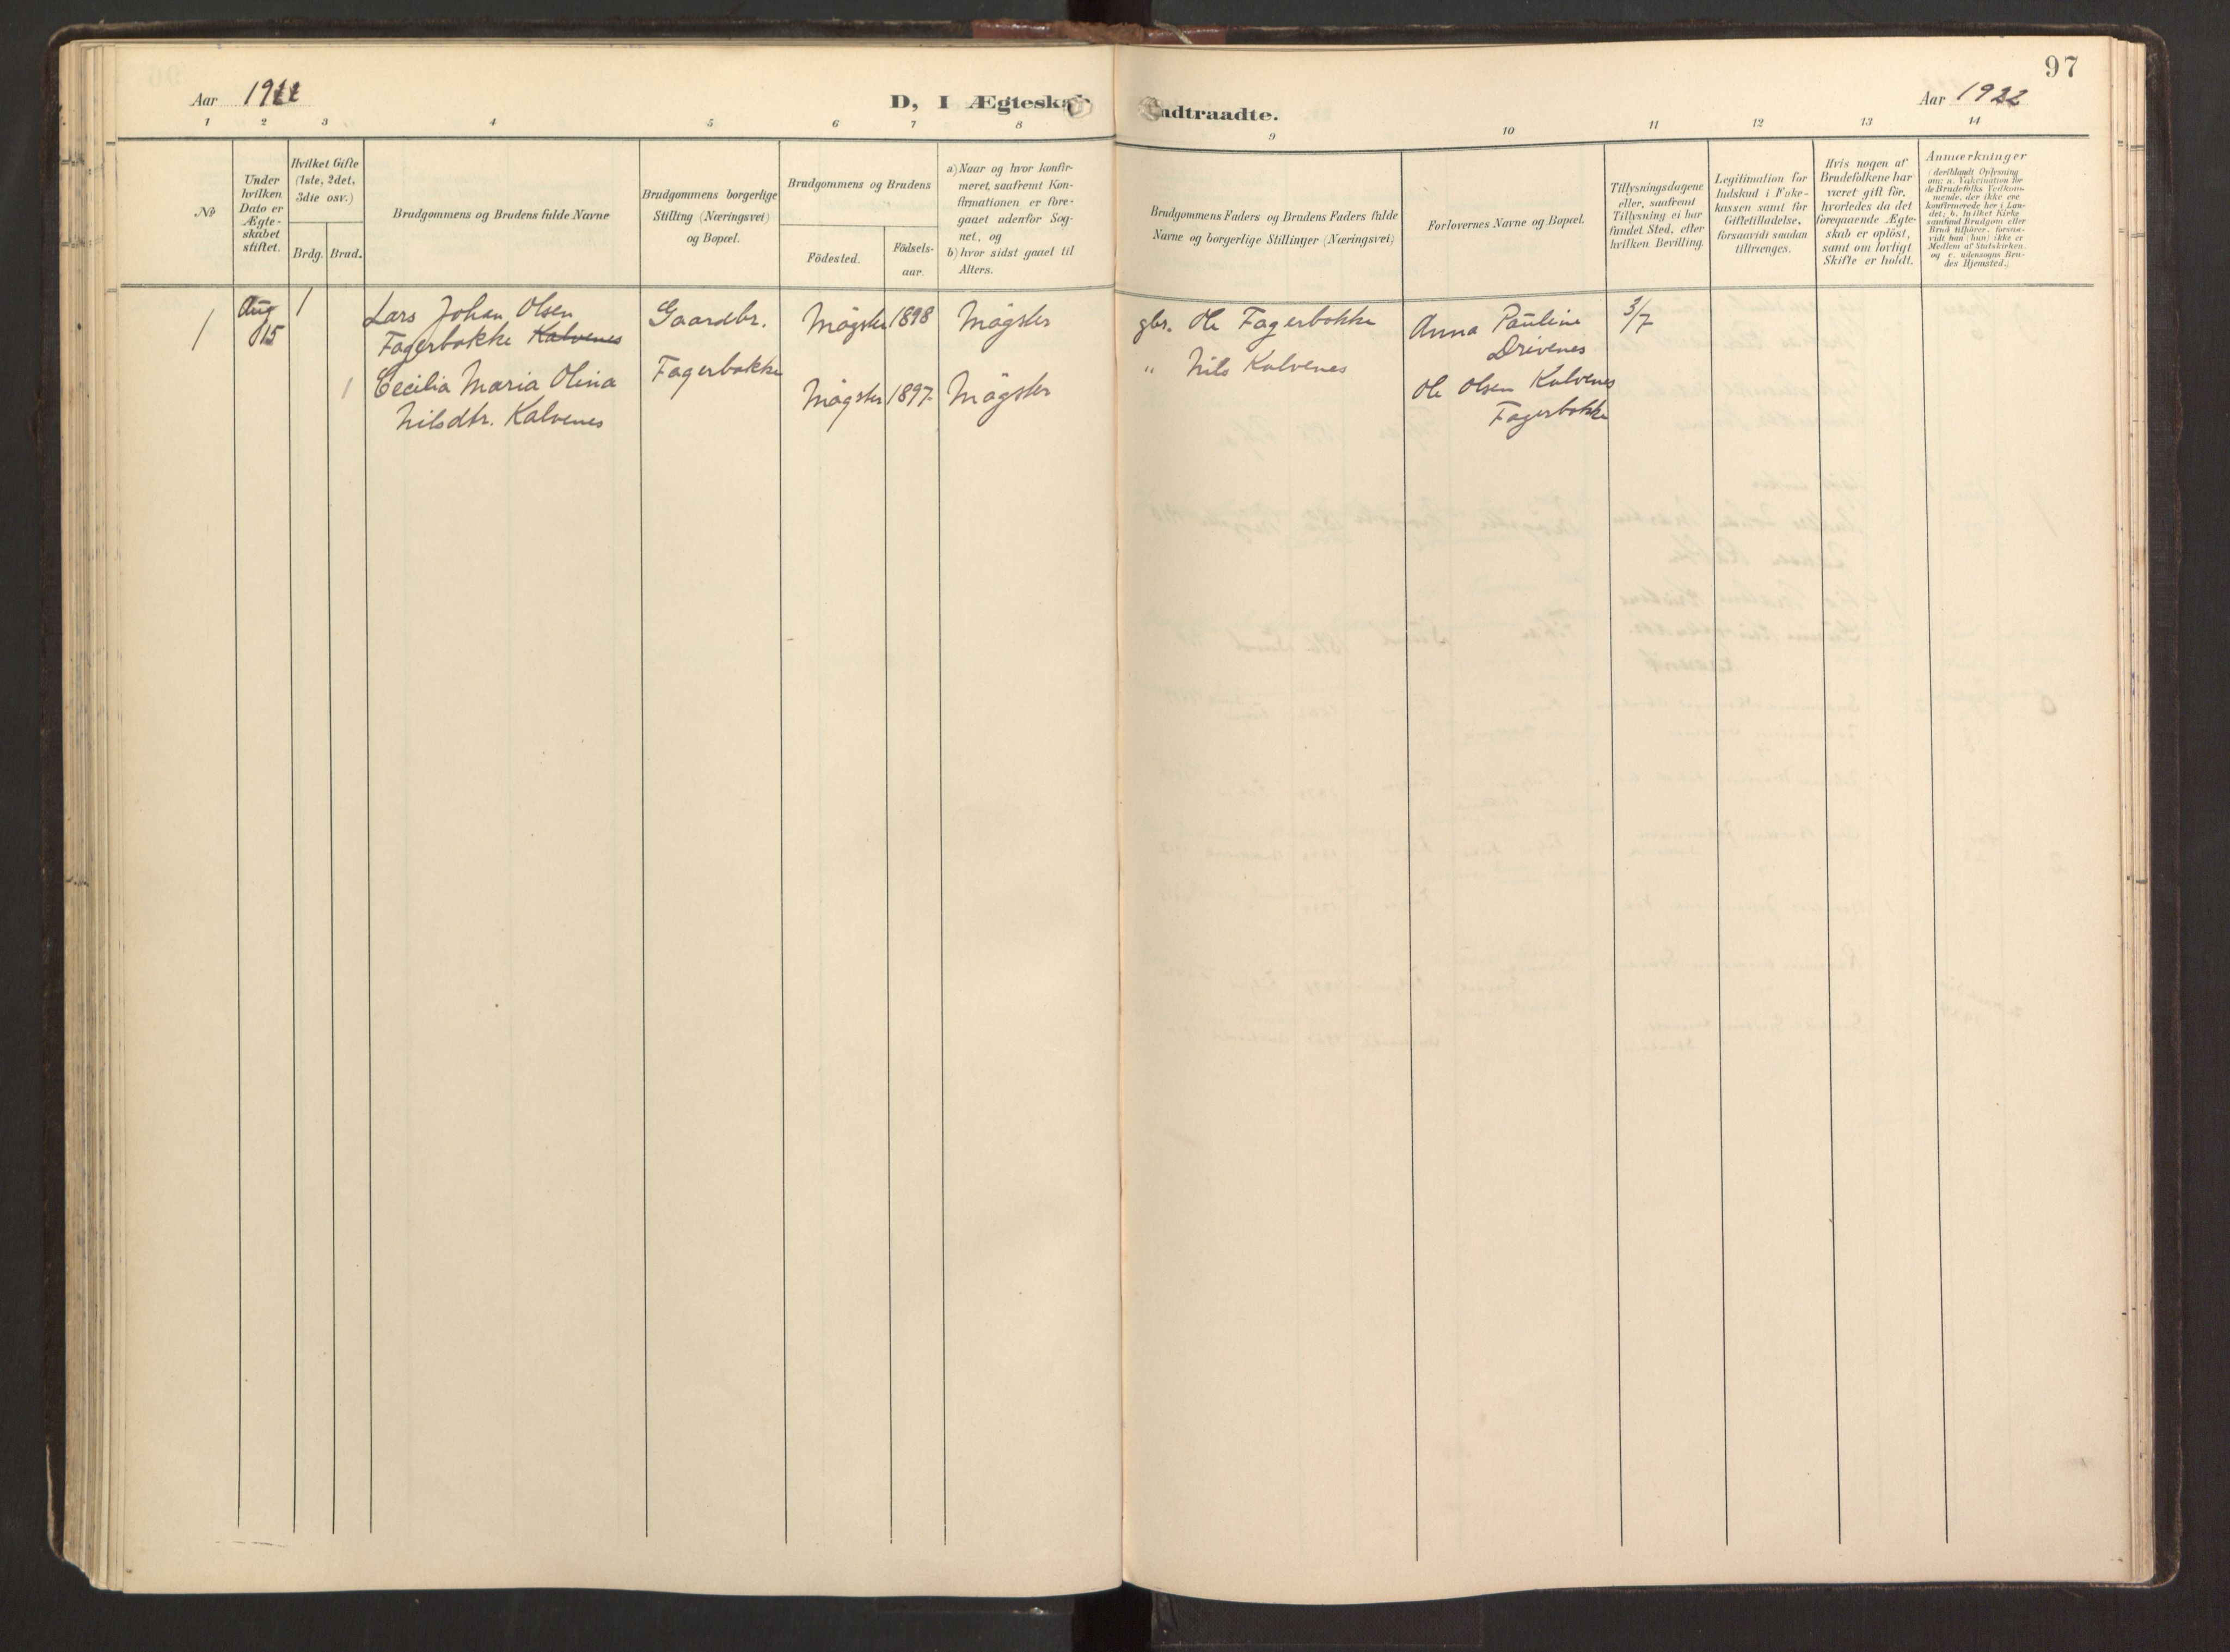 97
Aar 1922
D, I Ægteskab
Indtraadte.
Aar 1922
1 2 3 4 5 6 7 8
9 10 11 12 13 14
No
Under
hvilken
Dato er
Ægte-
skabet
stiftet.
Hvilket Gifte
(1ste, 2det,
3die osv.)
Brdg. Brud.
Brudgommens og Brudens fulde Navne
Brudgommens borgerlige
Stilling (Næringsvei)
og Bopæl.
Brudgommens og Brudens
Födested.
Födsels-
aar.
a) Naar og hvor konfir-
meret, saafremt Kon-
firmationen er fore-
gaaet udenfor Sog-
net, og
b) hvor sidst gaaet til
Alters.
Brudgommens Faders og Brudens Faders fulde
Navne og borgerlige Stillinger (Næringsvei)
Forlovernes Navne og Bopæl.
Tillysningsdagene
eller, saafremt
Tillysning ei har
fundet Sted, efter
hvilken Bevilling.
Legitimation for
Indskud i Enke-
kassen samt for
Giftetilladelse,
forsaavidt saadan
tiltrænges.
Hvis nogen af
Brudefolkene har
været gift för,
hvorledes da det
foregaaende Ægte-
skab er oplöst,
samt om lovligt
Skifte er holdt.
Anmærkninger
(deriblandt Oplysning
om: a. Vakcination for
de Brudefolks Vedkom-
mende, der ikke ere
konfirmerede her i Lan-
det; b. hvilket Kirke-
samfund Brudgom eller
Brud tilhører, forsaa-
vidt han (hun) ikke er
Medlem af Statskirken,
og c. udensogns Bru-
des Hjemsted.)
1
Aug
15
1
Lars Johan Olsen
Fagerbakke Kalvenes
Gaardbr.
Fagerbakke
Mögster 1898 Mögster
1
Cecilia Maria Olina
Nilsdtr. Kalvenes
Mögster 1897 Mögster
gbr. Ole Fagerbakke
" Nils Kalvenes
Anna Pauline
Drivenes
Ole Olsen Kalvenes
Fagerbakke
3/7